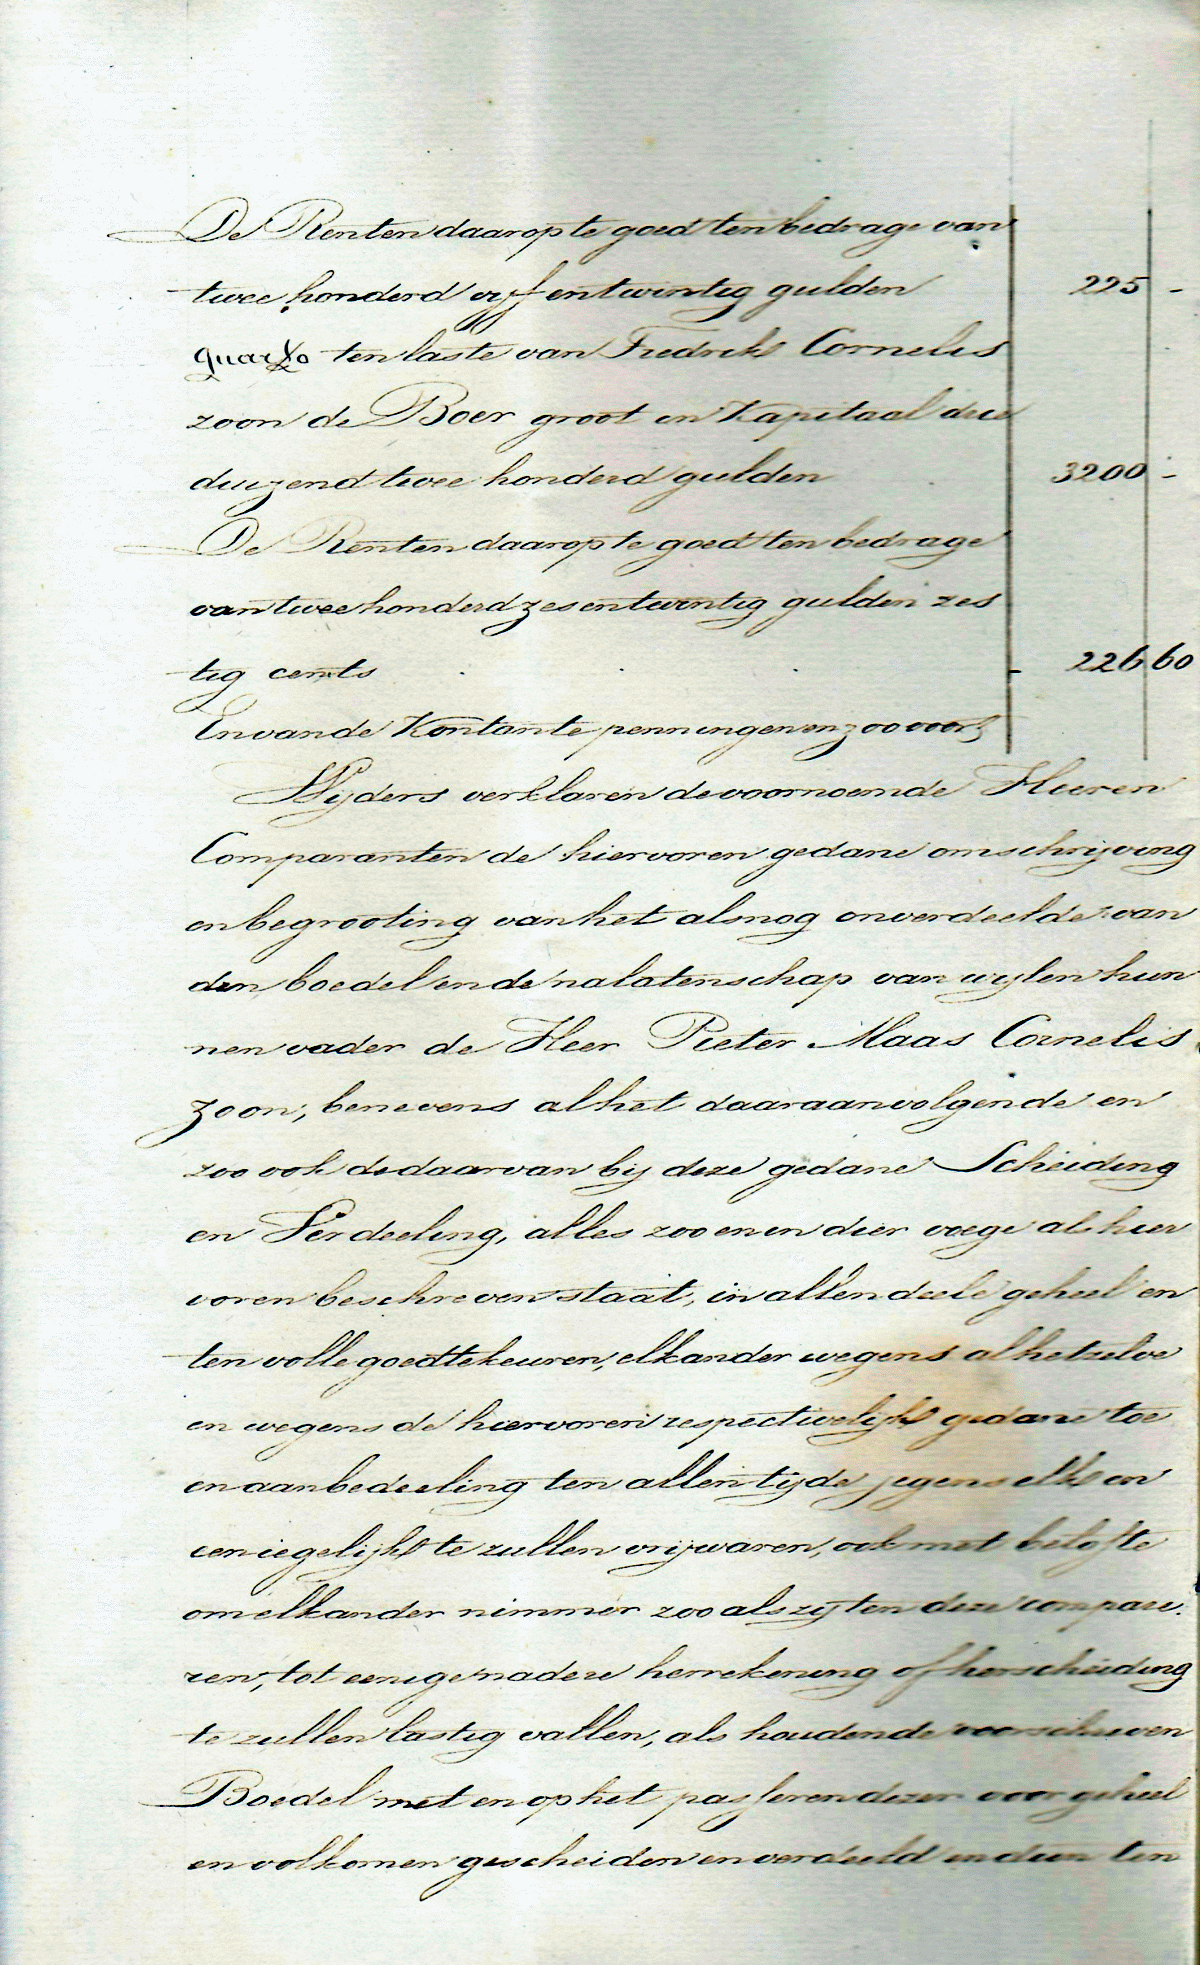 De Renten daarop te goed ten bedrage van
twee honderd vyf en twintig gulden 225 -
quarto ten laste van Fredrik Cornelis
zoon de Boer groot in Kapitaal drie
duizend twee honderd gulden 3200 -
De Renten daarop te goed ten bedrage
van twee honderd zes en twintig gulden zes
tig cents 226 60
En van de Kontante penningen enz oo voorts
Wyders verklaren de voornoemde Heeren
Comparanten de hiervoren gedane omschrijving
en begrooting van het alsnog onverdeelde van
den boedel en de nalatenschap van wylen hun
nen vader de Heer Pieter Maas Cornelis
zoon, benevens al het daaraanvolgende en
zoo ook de daarvan bij deze gedane Scheiding
en Verdeeling, alles zoo en in dier voege als hier
voren beschreven staat, in allen deele geheel en
ten volle goedtekeuren, elkander wegens al hetzelve
en wegens de hiervoren respectivelijk gedane toe
en aanbedeeling ten allen tijde jegens elk en
een iegelijk te zullen vrijwaren, ook met belofte
om elkander nimmer zoo als zij ten deze compare.
ren, tot eenige nadere herrekening of herscheiding
te zullen lastig vallen, als houdende
Boedel met en op het passeren dezer voor geheel
en volkomen gescheiden en verdeeld en dien ten